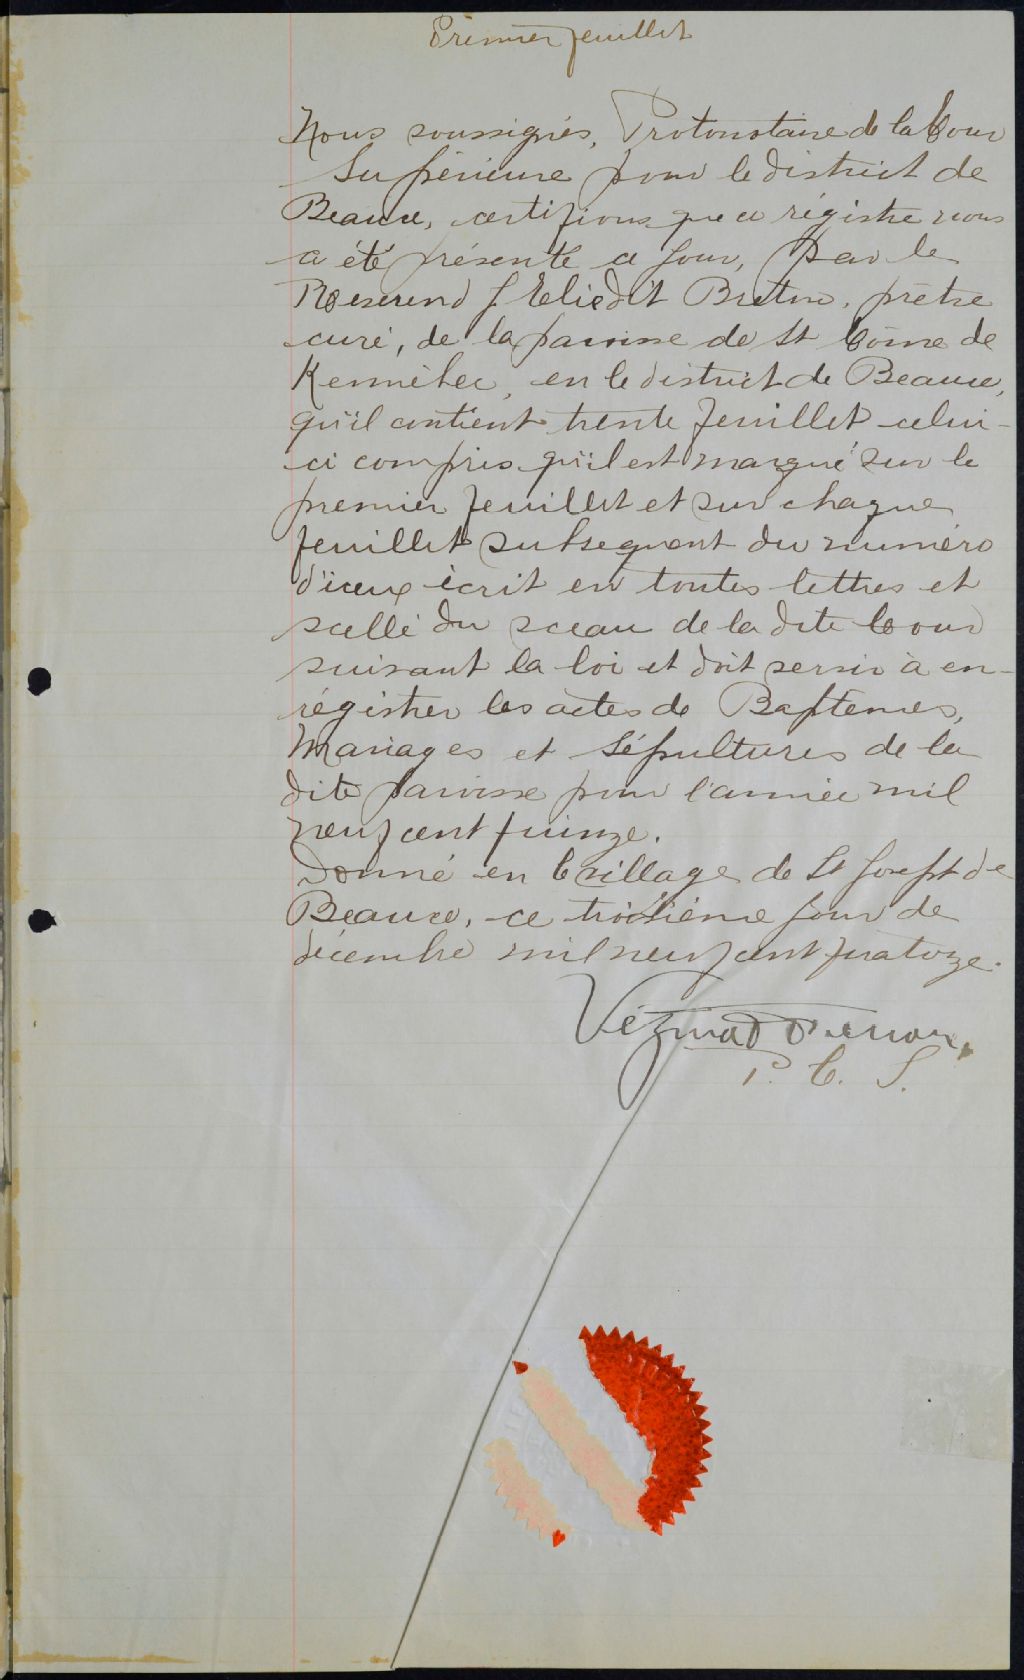 Premier feuillet
Nous soussignés, Protonotaire de la Cour
Supérieure pour le district de
Beauce, certifions que ce régistre nous
a été présenté ce jour, par le
Révérend J Elie dit Breton, prêtre
curé, de la paroisse de St Côme de
Kennébec, en le district de Beauce,
qu'il contient trente feuillet celui-
ci compris qu'il est marqué sur le
premier feuillet et sur chaque
feuillet subsequent du numéro
d'iceux écrit en toutes lettres et
scellé du sceau de la dite Cour
suivant la loi et doit servir à en-
régistrer les actes de Baptemes,
Mariages et Sépultures de la
dite paroisse pour l'année mil
neuf cent quinze.
Donné en le village de St Joseph de
Beauce, ce troisième jour de
décembre mil neuf cent quatorze.
Vézina
P. C. S.